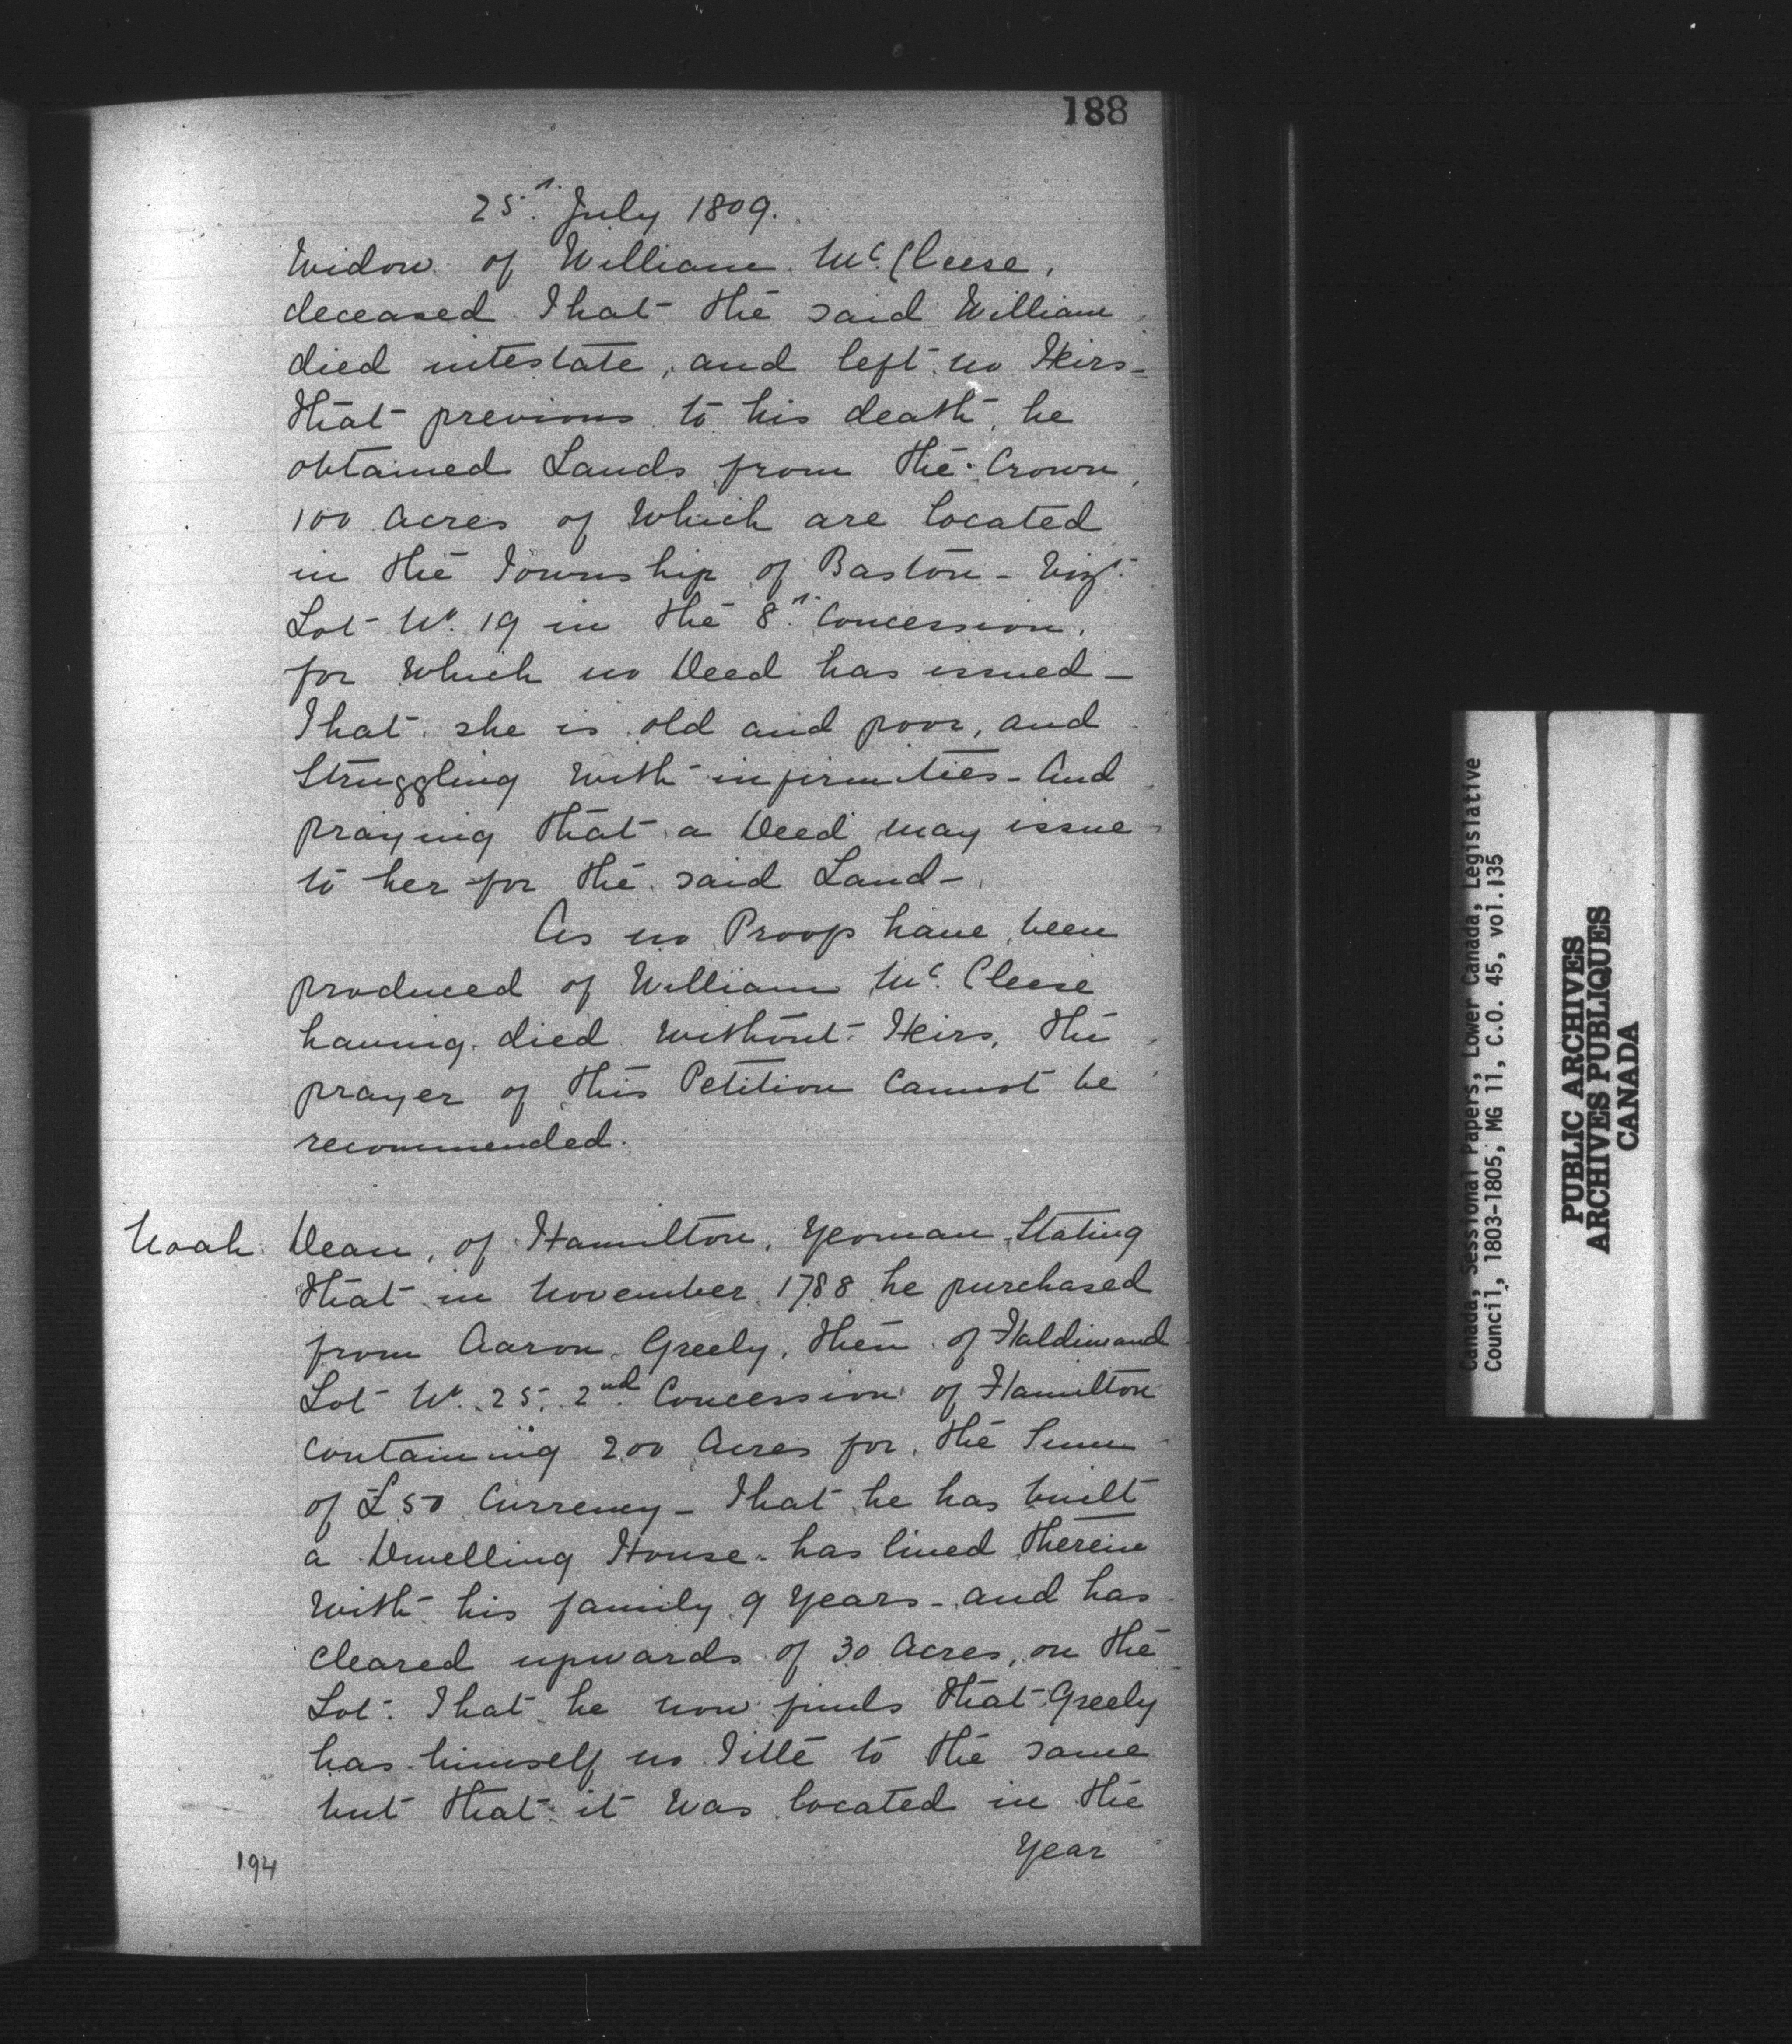 188
25th July 1809.
Widow of William Mc. Cleese,
deceased. That the said William
died intestate, and left no Heirs -
that previous to his death, he
obtained Lands from the Crown,
100 acres of which are located
in the Township of Bastore - Vizt.
Lot No. 19 in the 8th Concession,
for which no Deed has issued -
That she is old and poor, and
Struggling with infirmities - And
praying that a Deed may issue
to her for the said Land -
As no Proofs have been
produced of William Mc. Cleese
having died without Heirs, the
prayer of this Petition Cannot be
recommended.
Noah Dean, of Hamilton, Yeoman, Stating
that in November 1788 he purchased
from Aaron Greely, then of Haldimand
Lot No. 25, 2nd. Concession of Hamilton
Containing 200 Acres for the Sum
of £50 Currency - That he has built
a Dwelling House - has lived therein
with his family 9 Years - and has
Cleared upwards of 30 Acres, on the
Lot - That he now finds that Greely
has himself no Title to the same
but that it was located in the
Year
194
Canada, Sessional Papers, Lower Canada, Legislative
Council, 1803-1805, MG 11, C.O. 45, vol.135
PUBLIC ARCHIVES
ARCHIVES PUBLIQUES
CANADA